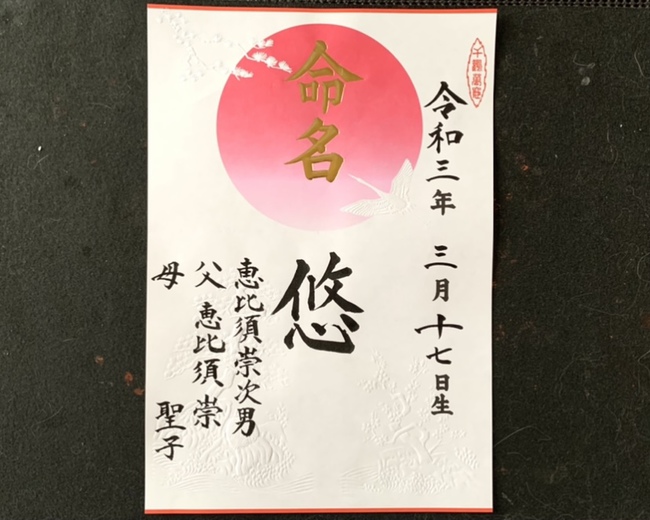 令和三年 三月十七日生
命名
悠
恵比須崇次男
父 恵比須 崇
母 聖子